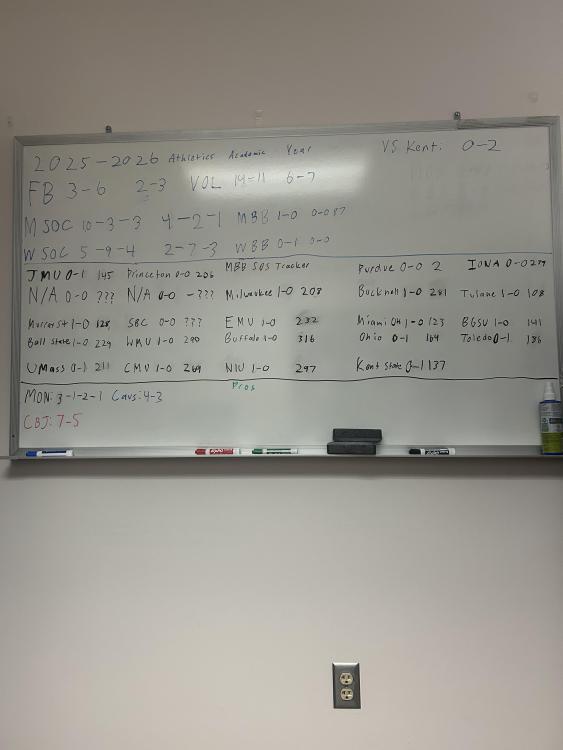 2025-2026 Athletics Academic Year VS Kent: 0-2
FB 3-6 2-3 VOL 14-11 6-7
M SOC 10-3-3 4-2-1 MBB 1-0 0-0 87
W SOC 5-9-4 2-7-3 WBB 0-1 0-0
MBB SOS Tracker
JMU 0-1 145 Princeton 0-0 206 Purdue 0-0 2 IONA 0-0 279
N/A 0-0 ??? N/A 0-0 -??? Milwaukee 1-0 203 Bucknell 1-0 281 Tulane 1-0 108
Murray St 1-0 128 SBC 0-0 ??? EMU 1-0 232 Miami OH 1-0 123 BGSU 1-0 141
Ball State 1-0 229 WMU 1-0 290 Buffalo 1-0 316 Ohio 0-1 164 Toledo 0-1 136
UMass 0-1 211 CMU 1-0 269 NIU 1-0 297 Kent State 0-1 137
Pros
MON: 3-1-2-1 Cavs: 4-3
CBJ: 7-5